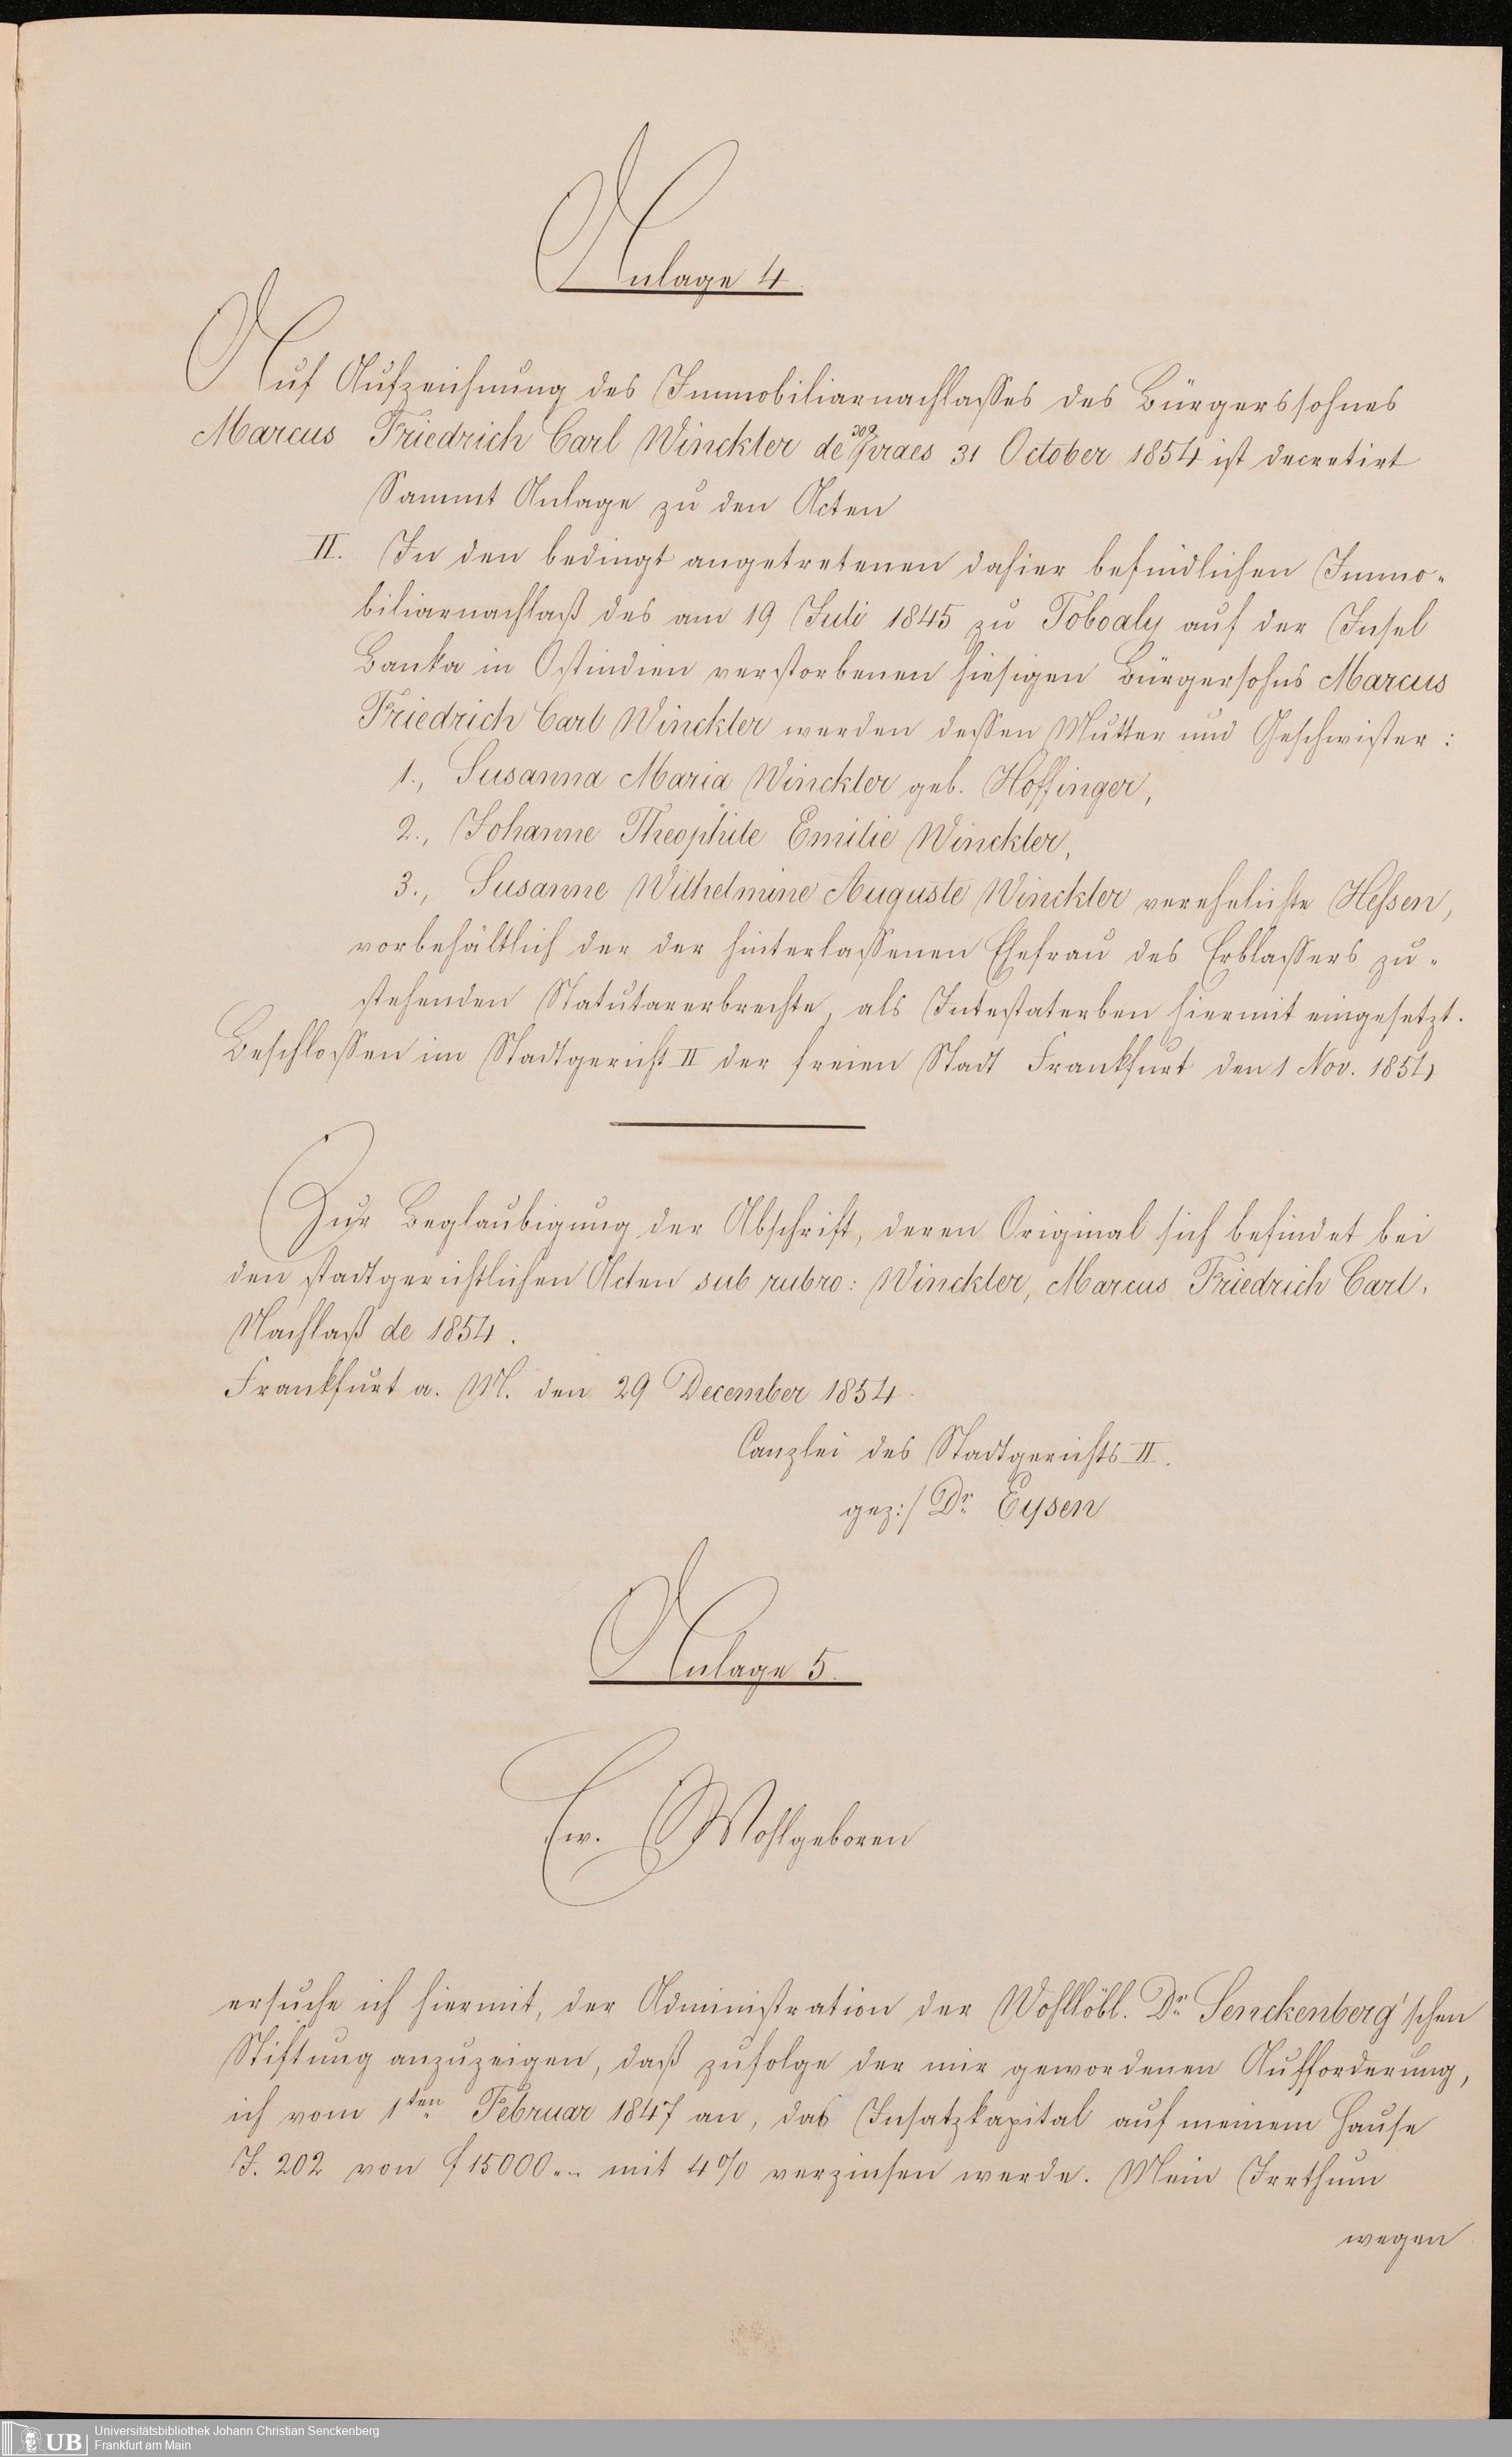 Anlage 4.
Auf Aufzeichnung des Immobiliarnachlasses des Bürgerssohnes
Marcus Friedrich Carl Winckler de praes 31 October 1854 ist decretirt
Sammt Anlage zu den Acten
II. In den bedingt angetretenen dahier befindlichen Immo-
biliarnachlaß des am 19 Juli 1845 zu Toboaly auf der Insel
Banka in Ostindien verstorbenen hiesigen Bürgersohns Marcus
Friedrich Carl Winckler werden dessen Mutter und Geschwister:
1., Susanna Maria Winckler geb. Hoffinger,
2., Johanne Theophile Emilie Winckler,
3., Susanne Wilhelmine Auguste Winckler verehelichte Hessen,
vorbehältlich der der hinterlassenen Ehefrau des Erblassers zu-
stehenden Statutarerbrechte, als Intestaterben hiermit eingesetzt.
Beschlossen im Stadtgericht II der freien Stadt Frankfurt den 1 Nov. 1854
Zur Beglaubigung der Abschrift, deren Original sich befindet bei
den stadtgerichtlichen Acten sub rubro: Winckler, Marcus Friedrich Carl,
Nachlaß de 1854.
Frankfurt a. M. den 29 December 1854.
Canzlei des Stadtgerichts II.
gez:/ Dr. Eysen
Anlage 5.
Ew. Wohlgeboren
ersuche ich hiermit, der Administration der Wohllöbl. Dr. Senckenberg'schen
Stiftung anzuzeigen, daß zufolge der mir gewordenen Aufforderung,
ich vom 1ten Februar 1847 an, das Insatzkapital auf meinem Hause
J. 202 von f 15000.- mit 4% verzinsen werde. Mein Irrthum
wegen
UB
Universitätsbibliothek Johann Christian Senckenberg
Frankfurt am Main